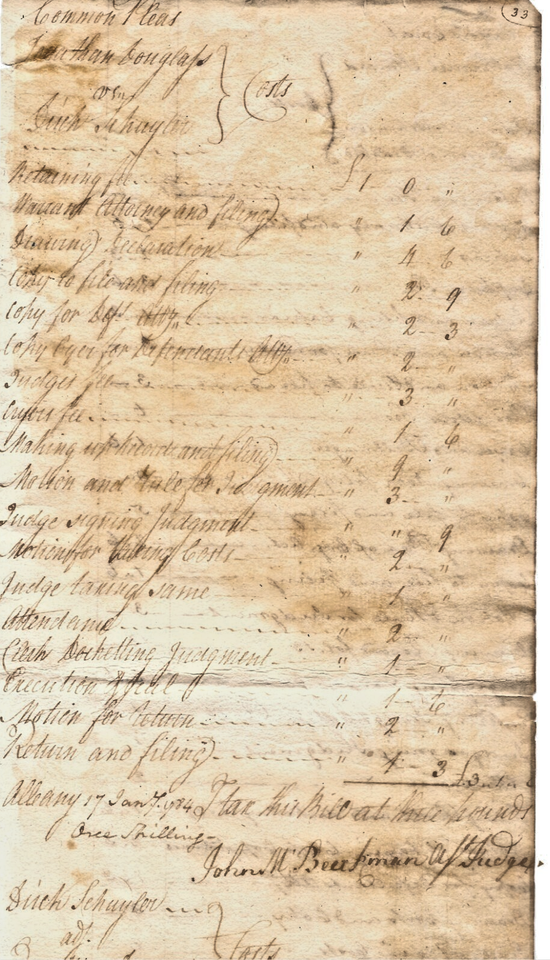 33
Common Pleas
Jonathan Douglass
vs
Dirck Schuyler
Costs
Retaining fee £1 0 "
Warrant Attorney and filing " 1 6
Drawing Declaration " 4 6
Copy to file and filing " 2 9
Copy for Deft Atty " 2 3
Copy Oyer for Defendants Atty " 2 "
Judges fee " 3 "
Cryers fee " 1 6
Making up Record and filing " 9 "
Motion and rule for Judgment " 3 "
Judge signing Judgment " " 9
Motion for taxing Costs " 2 "
Judge taxing same " 1 "
Attendance " 2 "
Clerk Docketting Judgment " 1 "
Execution & Seal " 1 6
Motion for Return " 2 "
Return and filing " 1 3
£3
Albany 17 Jany. 1784 I tax this Bill at three pounds
One Shilling
John M Beekman Ast Judge
Dirck Schuyler
ads
Costs